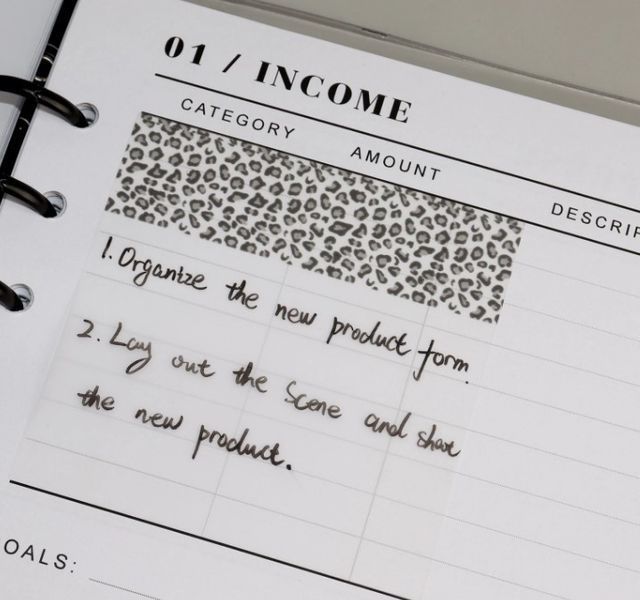 01 / INCOME
CATEGORY AMOUNT DESCRIP
1. Organize the new product form.
2. Lay out the Scene and shoot
the new product.
OALS: